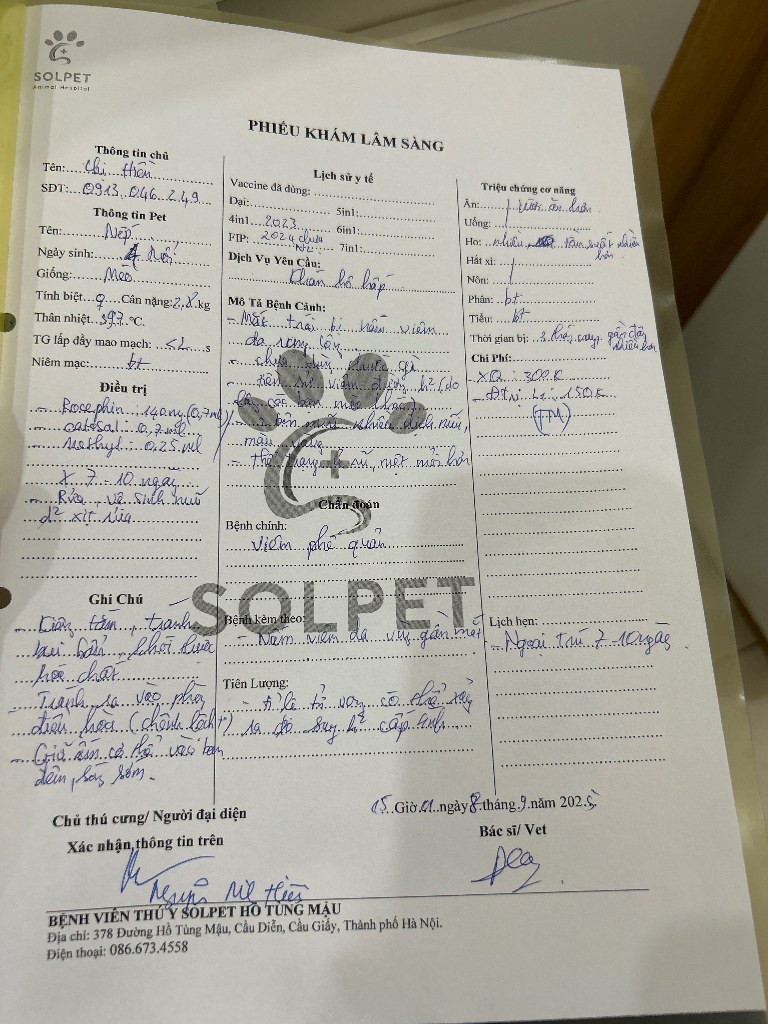 SOLPET
Animal Hospital
PHIẾU KHÁM LÂM SÀNG
Thông tin chủ
Tên: Chị Hiền
SĐT: 0913.046.249
Thông tin Pet
Tên: Nếp
Ngày sinh:
Giống: Mèo
Tính biệt ♀ Cân nặng: 2,8 kg
Thân nhiệt 39.7 °C.
TG lấp đầy mao mạch: <2 s
Niêm mạc: bt
Điều trị
- Rocephin: 140mg (0,7ml)
- catosal: 0,7 ml
- Methyl: 0,25 ml
x 7 - 10 ngày
- Rửa, vệ sinh mũi
d² xịt rửa
Ghi Chú
- Kiêng tắm, tránh
bụi bẩn, khói thuốc
hóa chất
- Tránh ra vào phòng
điều hòa (chênh lệch t)
- Giữ ấm cơ thể vào ban
đêm, sáng sớm.
Lịch sử y tế
Vaccine đã dùng:
Dại: 5in1:
4in1 2023 6in1:
FIP: 2024 chưa 7in1:
Dịch Vụ Yêu Cầu:
Khám hô hấp
Mô Tả Bệnh Cảnh:
- Mắt trái bị nấm viêm
da rụng lông
- chưa dùng thuốc gì
- tiền sử viêm đường h² (do
lây các bạn mèo khác)
- 2 bên mũi nhiều dịch mũi,
màu vàng
- thể trạng ủ rũ, mệt mỏi hơn
Chẩn đoán
Bệnh chính:
Viêm phế quản
Bệnh kèm theo:
- Nấm viêm da vùng gần mắt
Tiên Lượng:
- tỉ lệ tử vong có thể xảy
ra do suy h² cấp tính
Triệu chứng cơ năng
Ăn: lười ăn hơn
Uống:
Ho: nhiều, tần suất nhiều
hơn
Hắt xì:
Nôn:
Phân: bt
Tiểu: bt
Thời gian bị: gần đây
nhiều hơn
Chi Phí:
- XQ: 300k
- Đtrị L1: 150k
(TM)
Lịch hẹn:
- Ngoại trú 7-10 ngày
15 Giờ 01 ngày 8 tháng 9 năm 2025
Chủ thú cưng/ Người đại diện
Xác nhận thông tin trên
Bác sĩ/ Vet
BỆNH VIỆN THÚ Y SOLPET HỒ TÙNG MẬU
Địa chỉ: 378 Đường Hồ Tùng Mậu, Cầu Diễn, Cầu Giấy, Thành phố Hà Nội.
Điện thoại: 086.673.4558
SOLPET